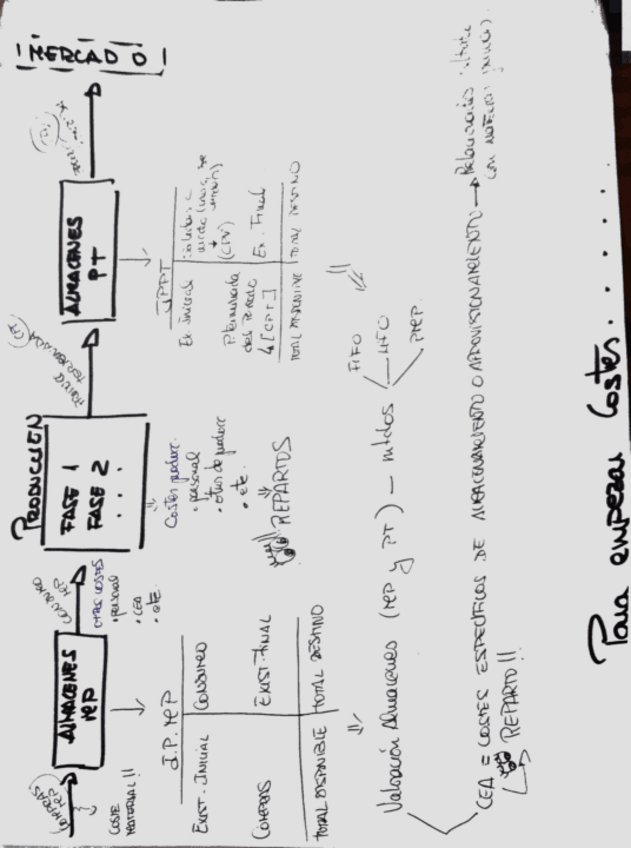 Para empezar Costes . . . . . .
COMPRAS
MP
COSTE
MATERIAL!!
ALMACENES
MP
CONSUMO
MP
OTROS COSTES
• personal
• CEA
• etc.
PRODUCCIÓN
FASE 1
FASE 2
. . .
Costes producc.
• personal
• otros de producc
• etc.
REPARTOS
ALMACENES
PT
MERCADO
I.P. MP
EXIST. INICIAL
CONSUMO
COMPRAS
EXIST. FINAL
TOTAL DISPONIBLE
TOTAL DESTINO
IPPT
Ex. Inicial
(CPV)
P. terminada
del Periodo
[CPT]
Ex. Final
TOTAL DISPONIBLE
TOTAL DESTINO
Valoración Almacenes (MP y PT) — métodos
FIFO
LIFO
PMP.
CEA = COSTES ESPECÍFICOS DE ALMACENAMIENTO O APROVISIONAMIENTO → Relacionados
con MATERIAS
REPARTO!!